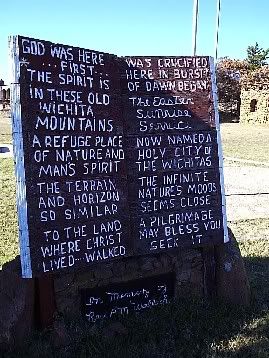 GOD WAS HERE
... FIRST ...
THE SPIRIT IS
IN THESE OLD
WICHITA
MOUNTAINS
A REFUGE PLACE
OF NATURE AND
MANS SPIRIT
THE TERRAIN
AND HORIZON
SO SIMILAR
TO THE LAND
WHERE CHRIST
LIVED-WALKED
WAS CRUCIFIED
HERE IN BURST
OF DAWN BEGAN
The Easter
Sunrise
Service
NOW NAMED A
HOLY CITY OF
THE WICHITAS
THE INFINITE
NATURES MOODS
SEEMS CLOSE
A PILGRIMAGE
MAY BLESS YOU
SEEK IT
In Memory of